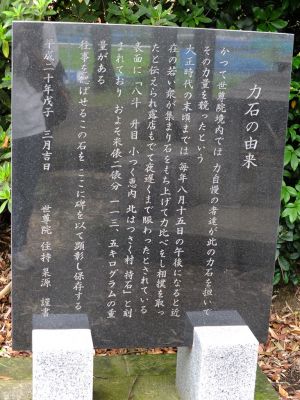 力石の由来
かつて世尊院境内では 力自慢の若者達が此の力石を担いで
その力量を競ったという
大正時代の末頃までは 毎年八月十五日の午後になると近
在の若い衆が集まり石をもち上げて力比べをし相撲を取っ
たと伝えられ露店もでて夜遅くまで賑わったとされている
表面に「八斗 升目 小つく恵内 北はつさく村 持石」と刻
まれており およそ米俵二俵分 一一三、五キログラムの重
量がある
往事を偲ばせるこの石を ここに碑を以て顕彰し保存する
平成二十年戊子 三月吉日
世尊院 住持 泉源 謹書